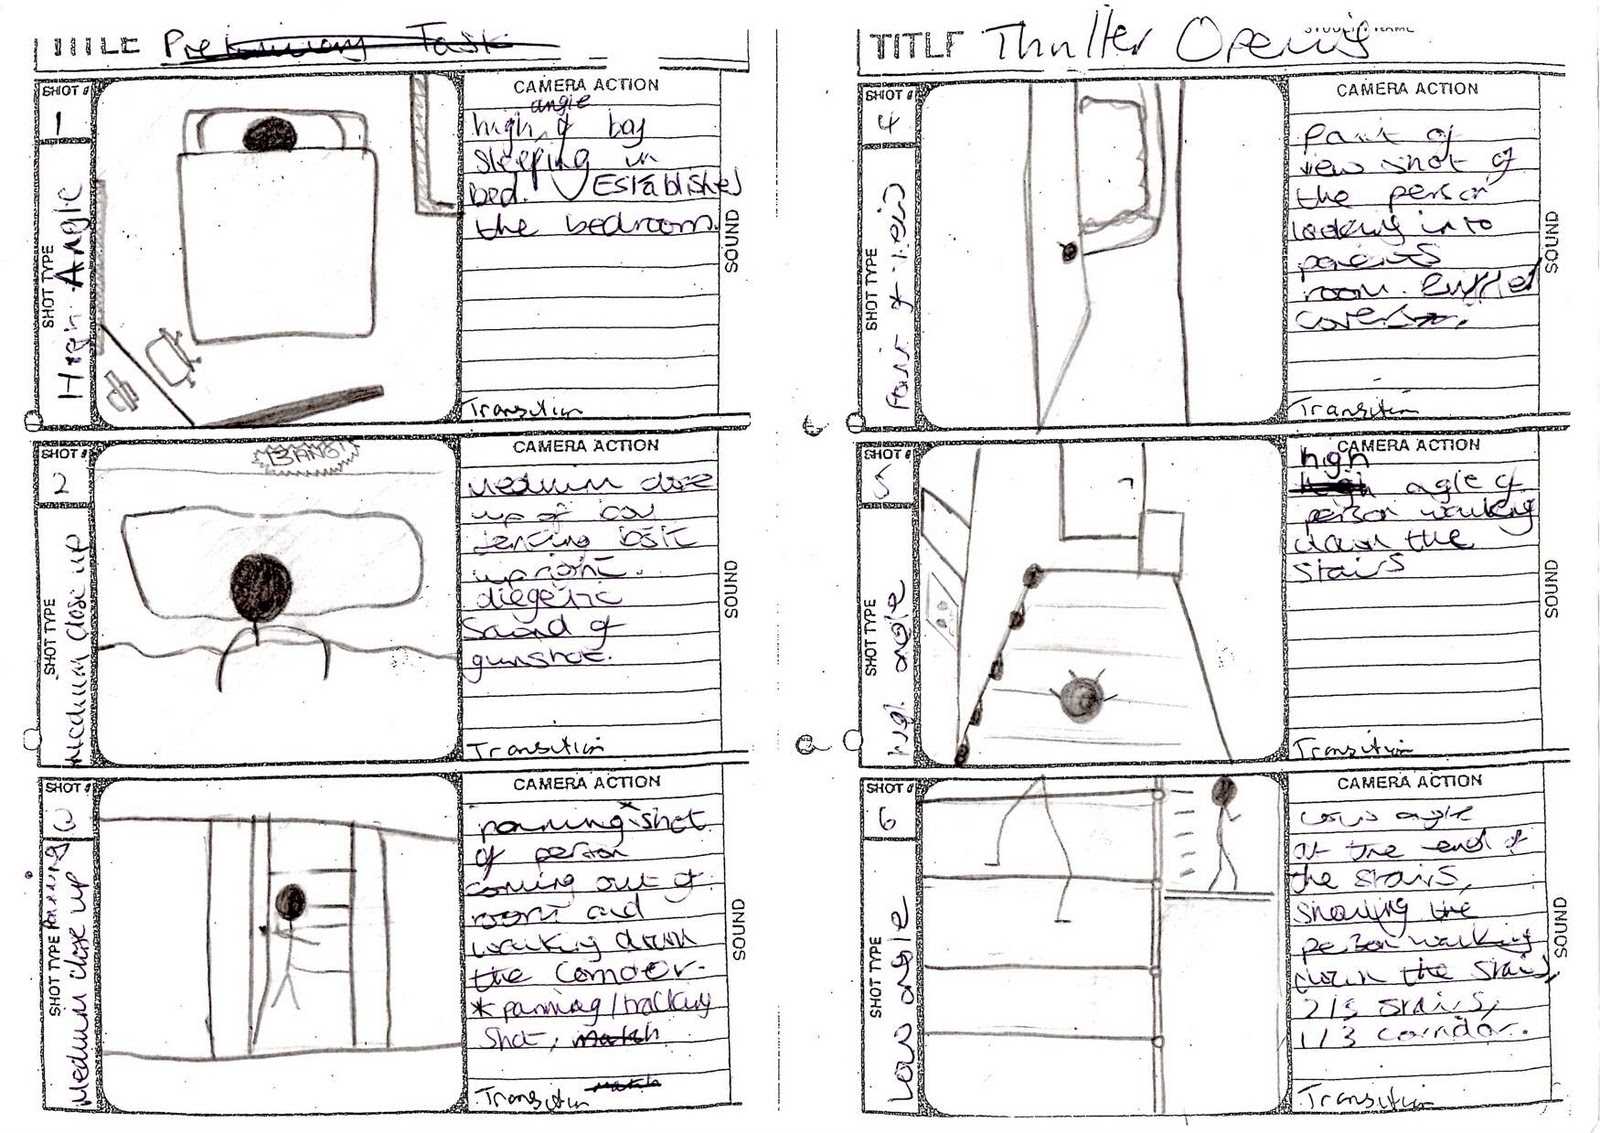 TITLE Preliminary Task
SHOT #
1
SHOT TYPE
High Angle
CAMERA ACTION
angle
high, of boy
sleeping in
bed. Establishes
the bedroom.
SOUND
Transition
SHOT #
2
SHOT TYPE
Medium close up
BANG!
CAMERA ACTION
Medium close
up of boy
bolt
upright.
diegetic
Sound of
gunshot.
SOUND
Transition
SHOT #
SHOT TYPE Panning
Medium close up
CAMERA ACTION
panning * shot
of person
coming out of
room and
walking down
the corridor.
* panning/tracking
shot, match
SOUND
Transition match
TITLE Thriller Opening
STUDENT NAME
SHOT #
4
SHOT TYPE
Point of view
CAMERA ACTION
Point of
view shot of
the person
looking into
parents
room.
covers.
SOUND
Transition
SHOT #
5
SHOT TYPE
high angle
CAMERA ACTION
high
high angle of
person walking
down the
stairs
SOUND
Transition
SHOT #
6
SHOT TYPE
Low angle
CAMERA ACTION
Low angle
at the end of
the stairs,
showing the
person walking
down the stairs,
2/3 stairs,
1/3 corridor.
SOUND
Transition